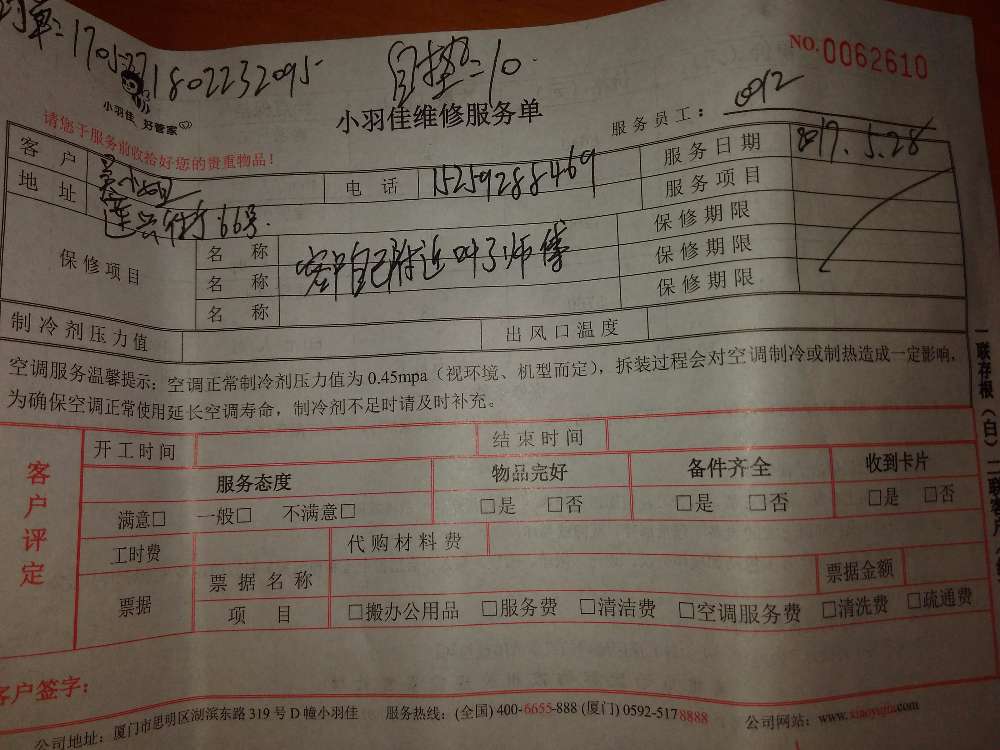 单:170527
1802232095
自垫:10.
NO.0062610
小羽佳 好管家
小羽佳维修服务单
服务员工: 012
请您于服务前收拾好您的贵重物品!
客户 吴小姐 电话 15259288469 服务日期 2017.5.28
地址 莲兴街 66号. 服务项目
保修项目 名称 保修期限
名称 客户自己附近叫了师傅 保修期限
名称 保修期限
制冷剂压力值 出风口温度
空调服务温馨提示:空调正常制冷剂压力值为0.45mpa(视环境、机型而定),拆装过程会对空调制冷或制热造成一定影响,
为确保空调正常使用延长空调寿命,制冷剂不足时请及时补充。
一联存根(白)
客户评定
开工时间 结束时间
服务态度 物品完好 备件齐全 收到卡片
满意□ 一般□ 不满意□ □是 □否 □是 □否 □是 □否
工时费 代购材料费
票据 票据名称 票据金额
项目 □搬办公用品 □服务费 □清洁费 □空调服务费 □清洗费 □疏通费
客户签字:
公司地址:厦门市思明区湖滨东路319号D幢小羽佳 服务热线:(全国)400-6655-888 (厦门)0592-5178888 公司网站:www.xiaoyujia.com